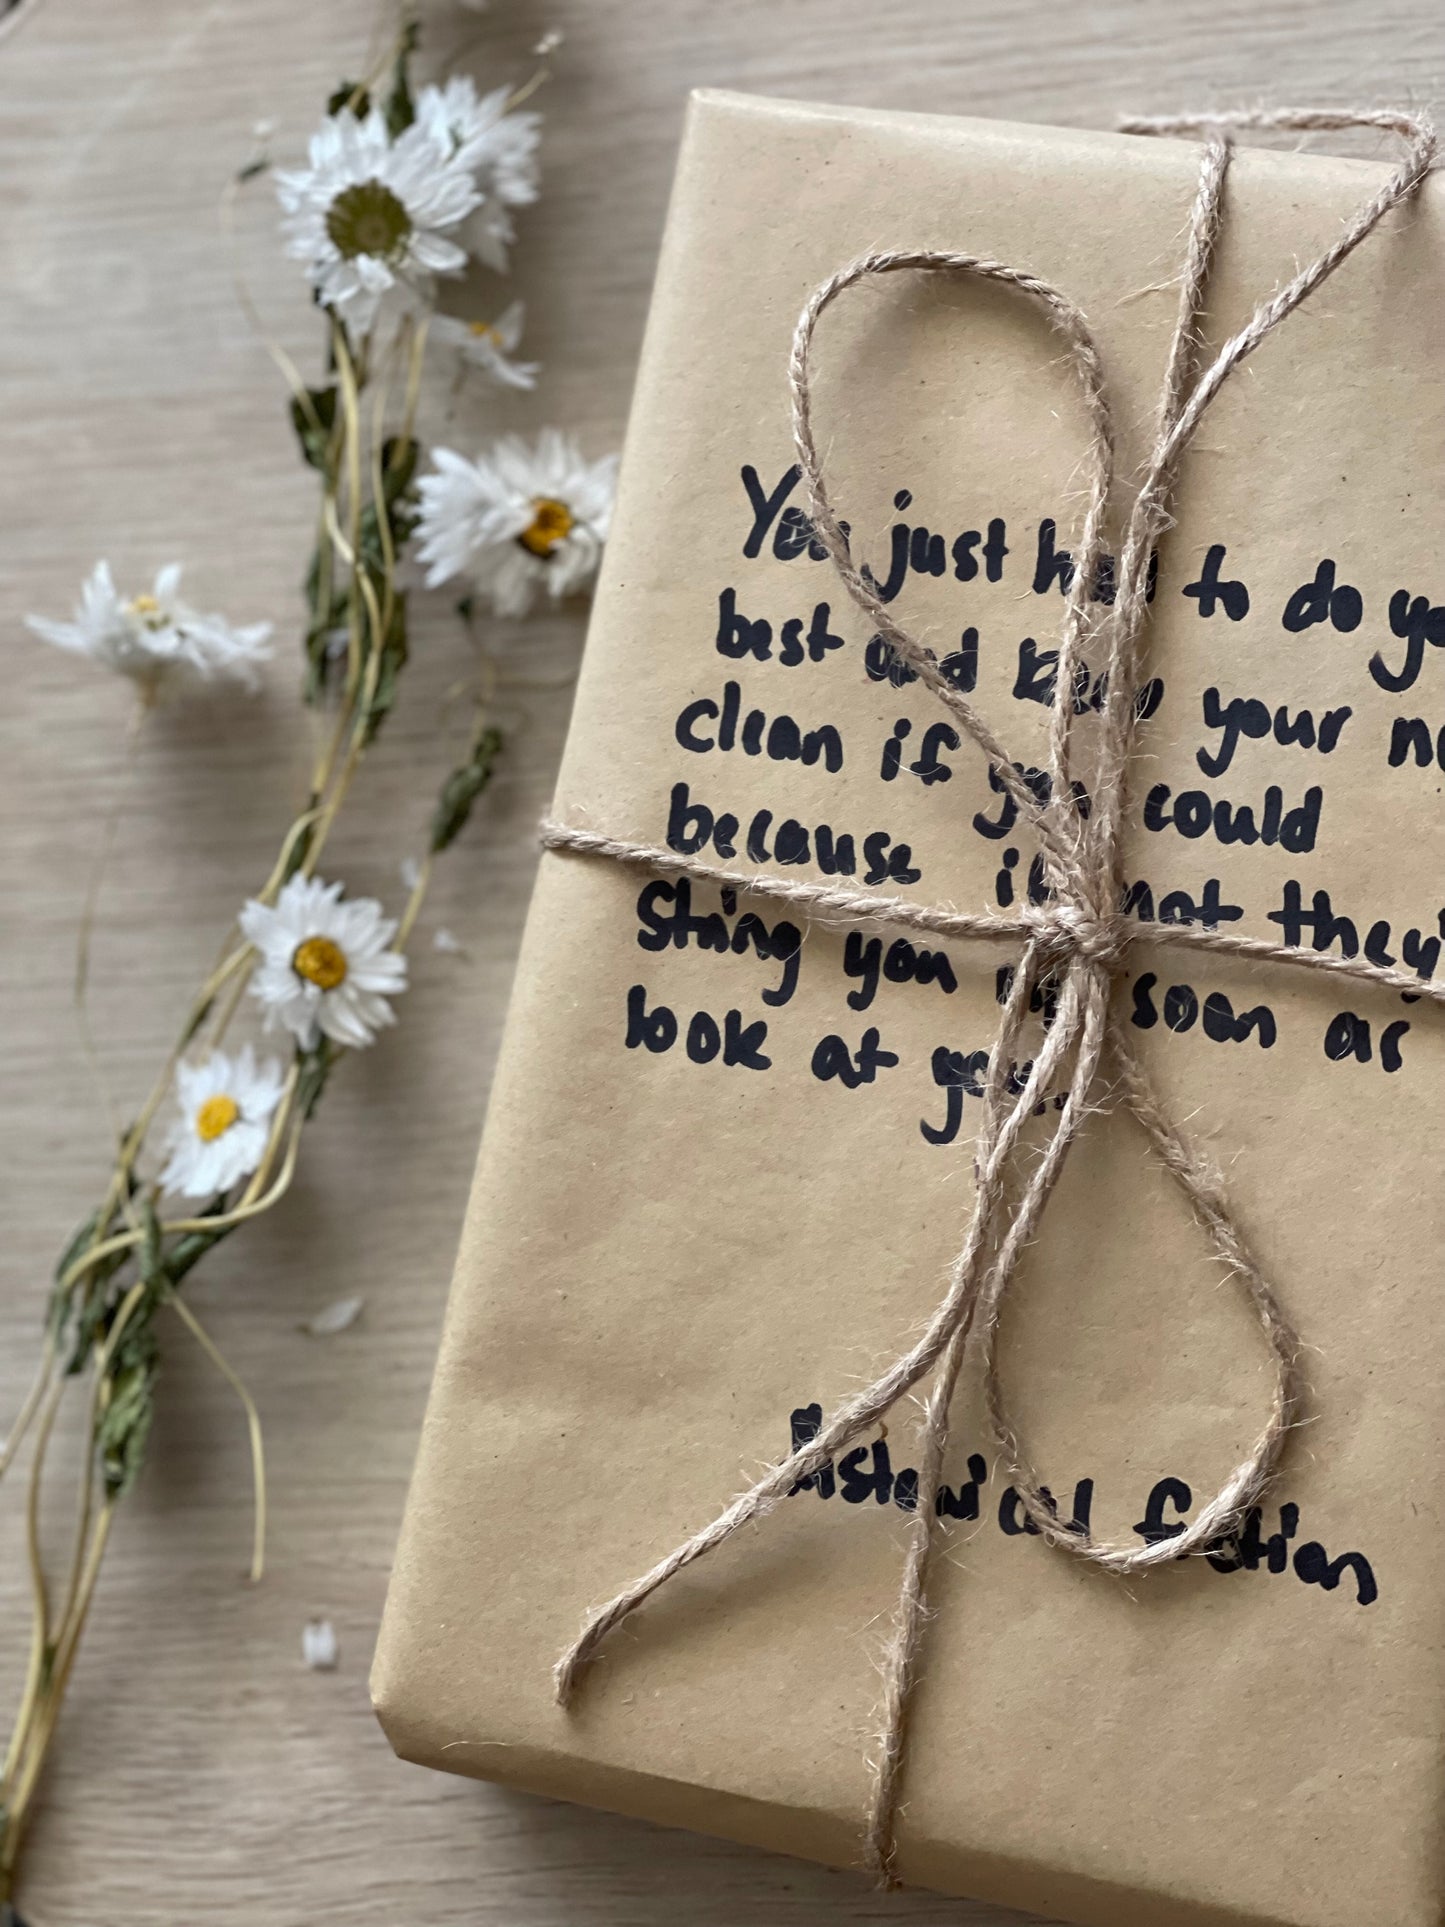 You just had to do yo
best and keep your n
clean if you could
because if not they'
string you up soon as
look at you.
historical fiction